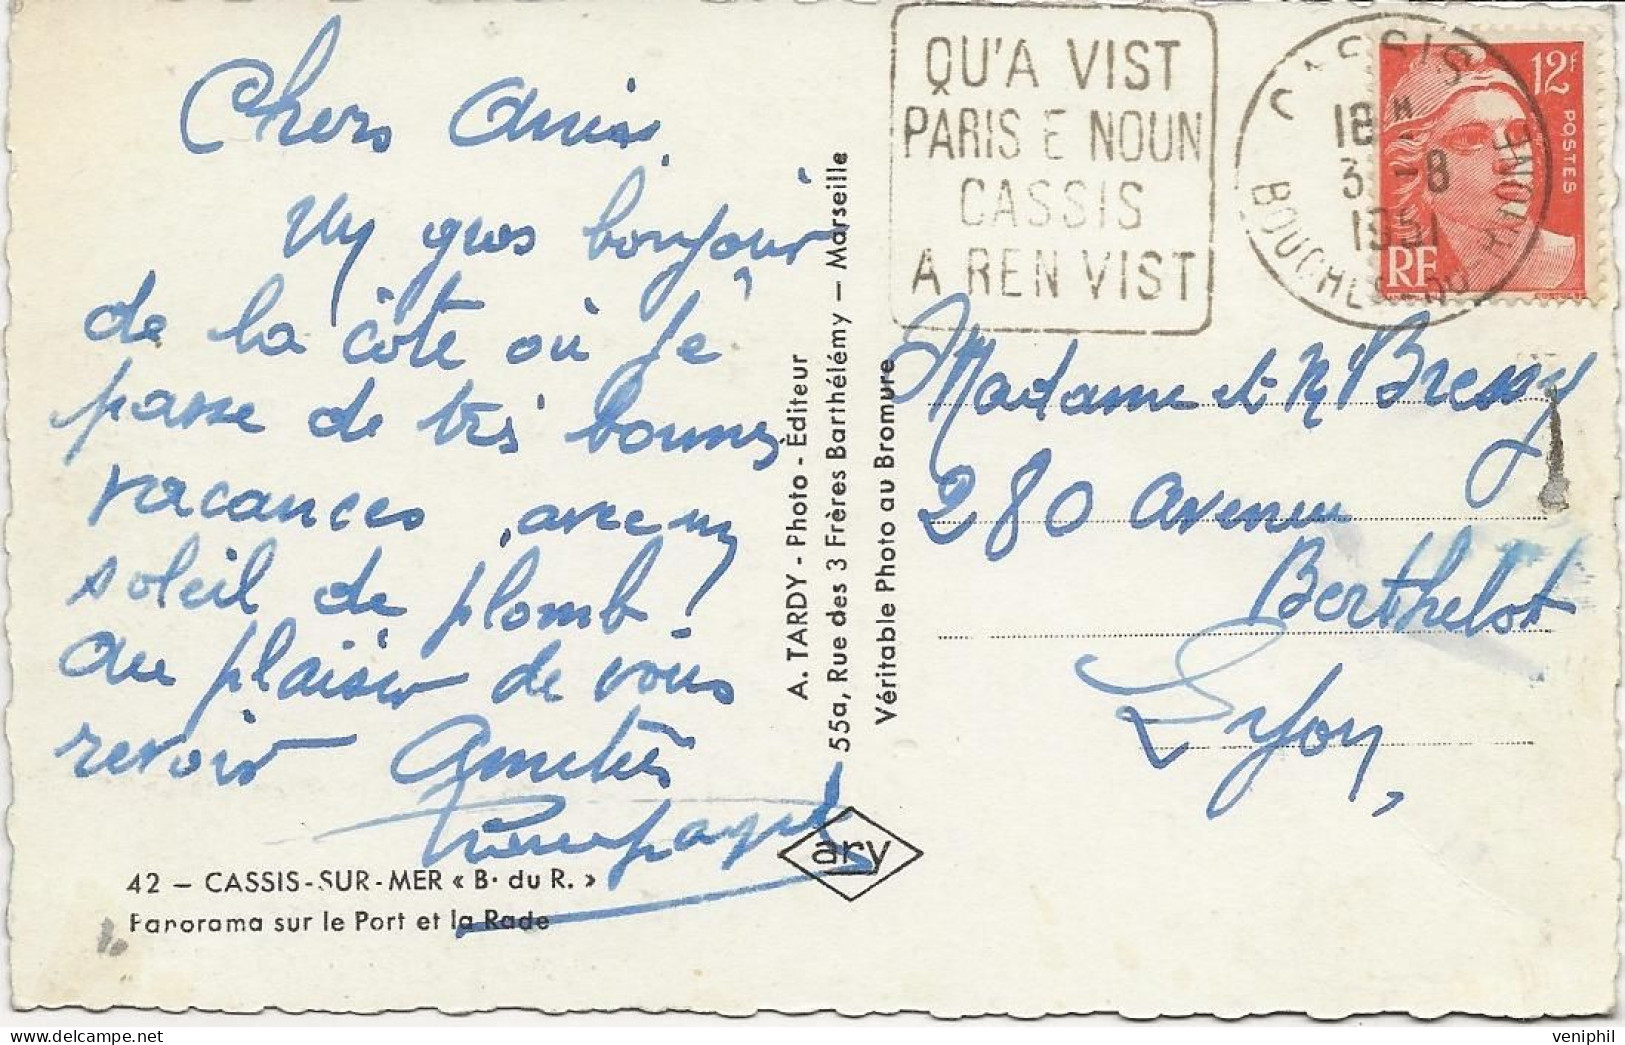 Chers Amis,
Un gros bonjour
de la côte où je
passe de très bonnes
vacances, avec un
soleil de plomb !
Au plaisir de vous
revoir Amitiés
42 — CASSIS-SUR-MER « B. du R. »
Panorama sur le Port et la Rade
A. TARDY - Photo - Éditeur
55a, Rue des 3 Frères Barthélémy — Marseille
Véritable Photo au Bromure
ary
QU'A VIST
PARIS E NOUN
CASSIS
A REN VIST
CASSIS
18 H
3 -8
1951
BOUCHES-DU-RHONE
12F
POSTES
RF
Madame et Mr Bressy
280 Avenue
Berthelot
Lyon,
veniphil